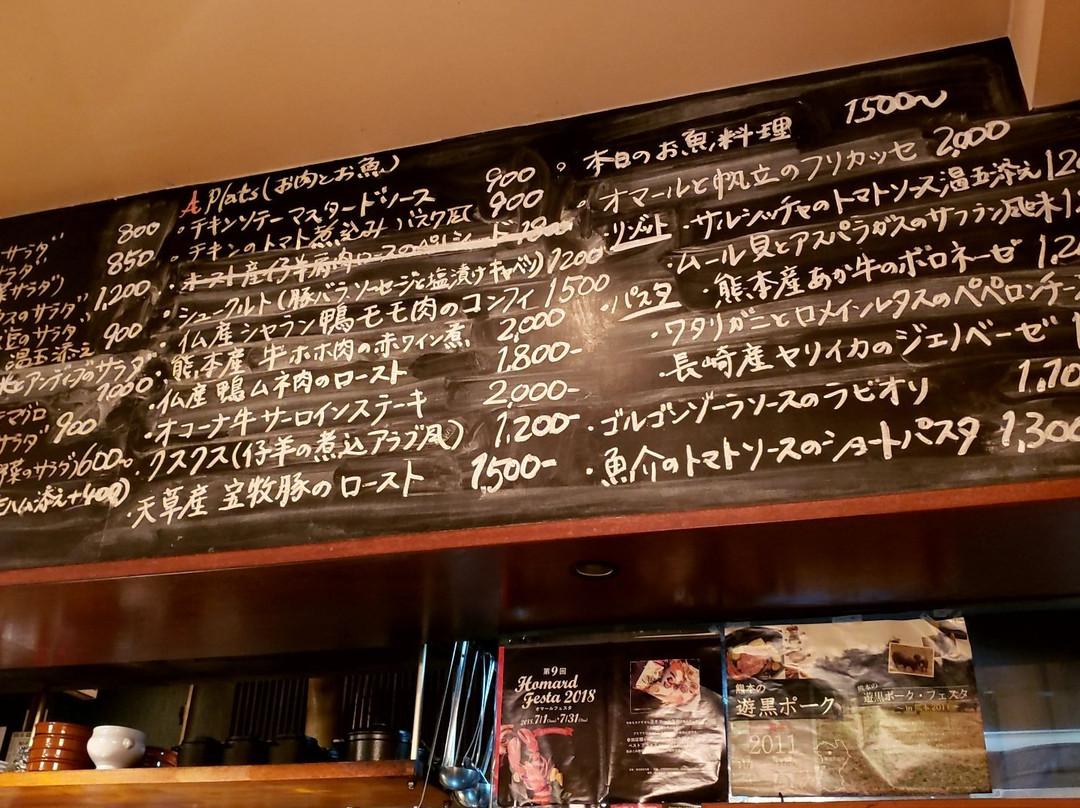 サラダ 800
サラダ 850
菜サラダ) 1,200
マのサラダ
塩のサラダ 900
温玉添え
とアンディーブのサラダ 1000
マグロ
サラダ 900
野菜のサラダ) 600~
ハム添え+400)
A Plats (お肉とお魚)
・チキンソテーマスタードソース 900
・チキンのトマト煮込み バスク風 900
・シュークルト(豚バラ・ソーセージと塩漬けキャベツ) 1200
・仏産シャラン鴨モモ肉のコンフィ 1500
・熊本産 牛ホホ肉の赤ワイン煮 2,000
・仏産鴨ムネ肉のロースト 1,800-
・オコーナ牛サーロインステーキ 2,000-
・クスクス(仔羊の煮込アラブ風) 1,200-
・天草産 宝牧豚のロースト 1,500-
。本日のお魚料理 1500~
。オマールと帆立のフリカッセ 2,000
・リゾット ・サルシッチャのトマトソース温玉添え
・ムール貝とアスパラガスのサフラン風味
・パスタ ・熊本産あか牛のボロネーゼ
・ワタリガニとロメインレタスのペペロンチーノ
・長崎産ヤリイカのジェノベーゼ
・ゴルゴンゾーラソースのラビオリ
・魚介のトマトソースのショートパスタ 1,300
第9回
Homard
Festa 2018
オマールフェスタ
2018. 7/1 7/31
熊本の
遊黒ポーク
2011
熊本の
遊黒ポーク・フェスタ